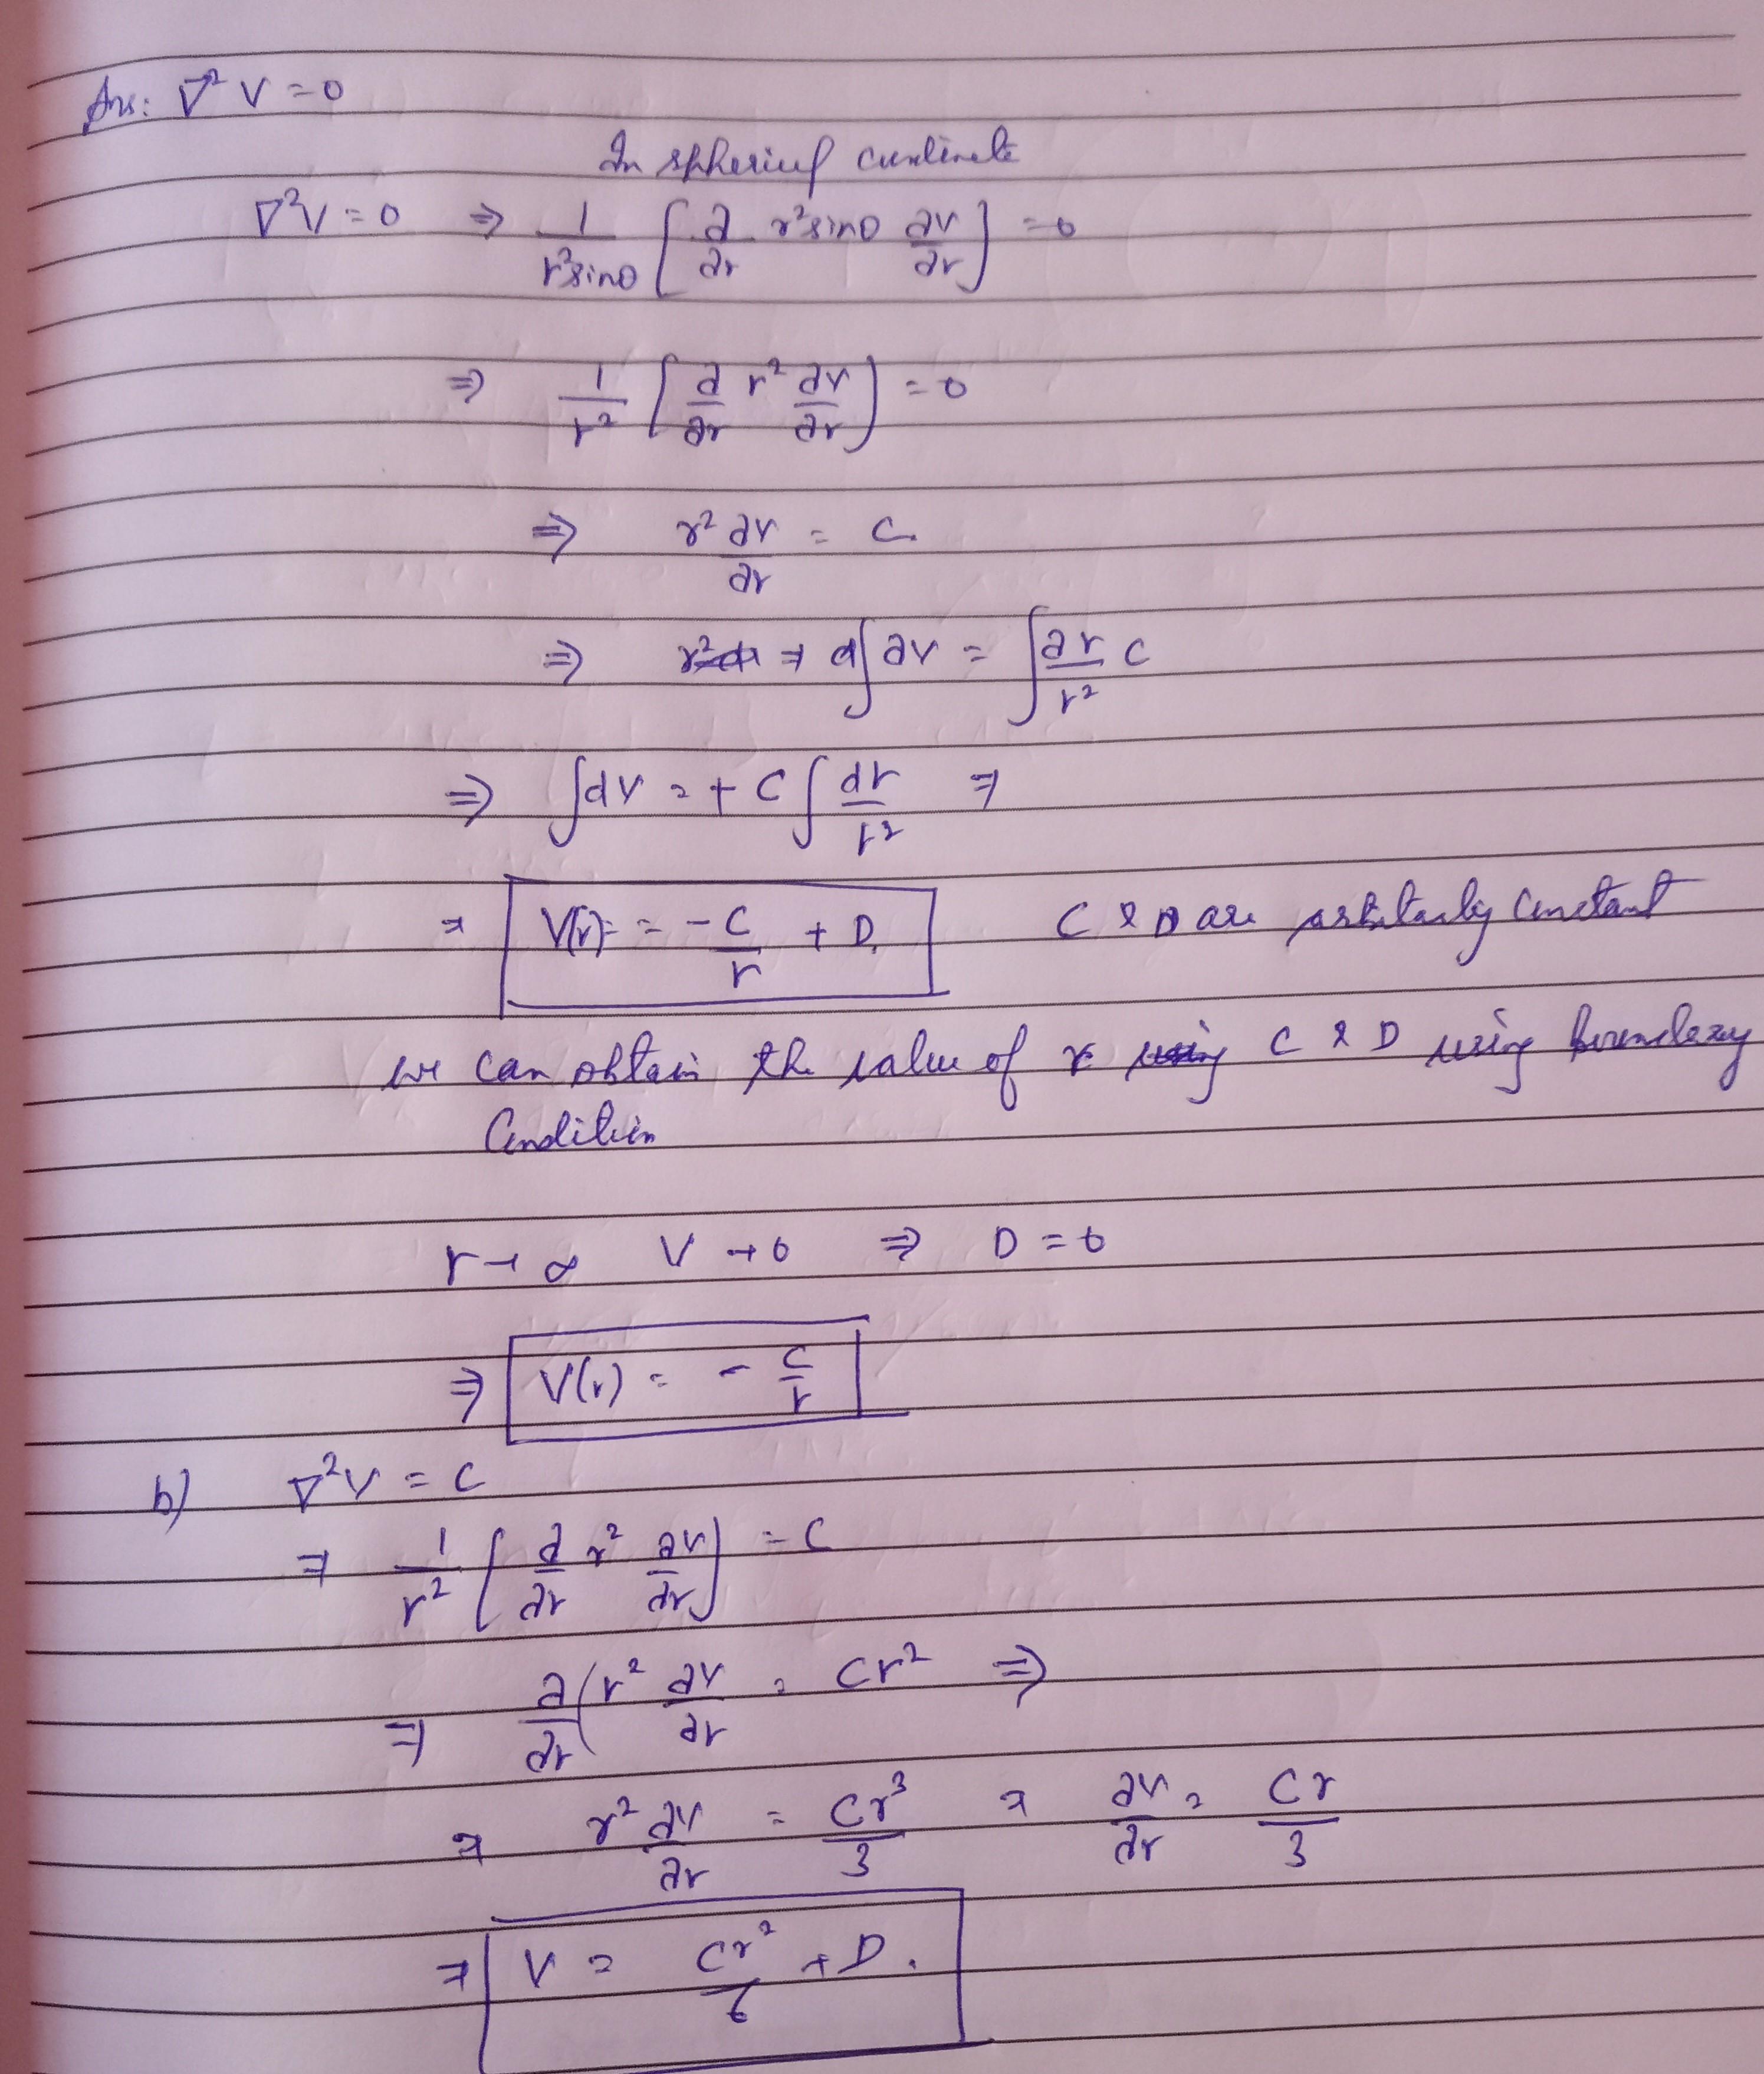 Ans: ∇² V = 0
In spherical cordinate
∇²V = 0 ⇒ 1/(r²sinθ) [∂/∂r r²sinθ ∂V/∂r] = 0
⇒ 1/r² [∂/∂r r² ∂V/∂r] = 0
⇒ r² ∂V/∂r = C
⇒ ∫∂V = ∫∂r/r² C
⇒ ∫dV = + C ∫dr/r² ⇒
⇒ V(r) = - C/r + D. C & D are arbitarly constant
we can obtain the value of C & D using boundary
Condition
r → ∞ V → 0 ⇒ D = 0
⇒ V(r) = - C/r
b) ∇²V = C
⇒ 1/r² [∂/∂r r² ∂V/∂r] = C
⇒ ∂/∂r (r² ∂V/∂r = Cr² ⇒
⇒ r² ∂V/∂r = Cr³/3 ⇒ ∂V/∂r = Cr/3
⇒ V = Cr²/6 + D.